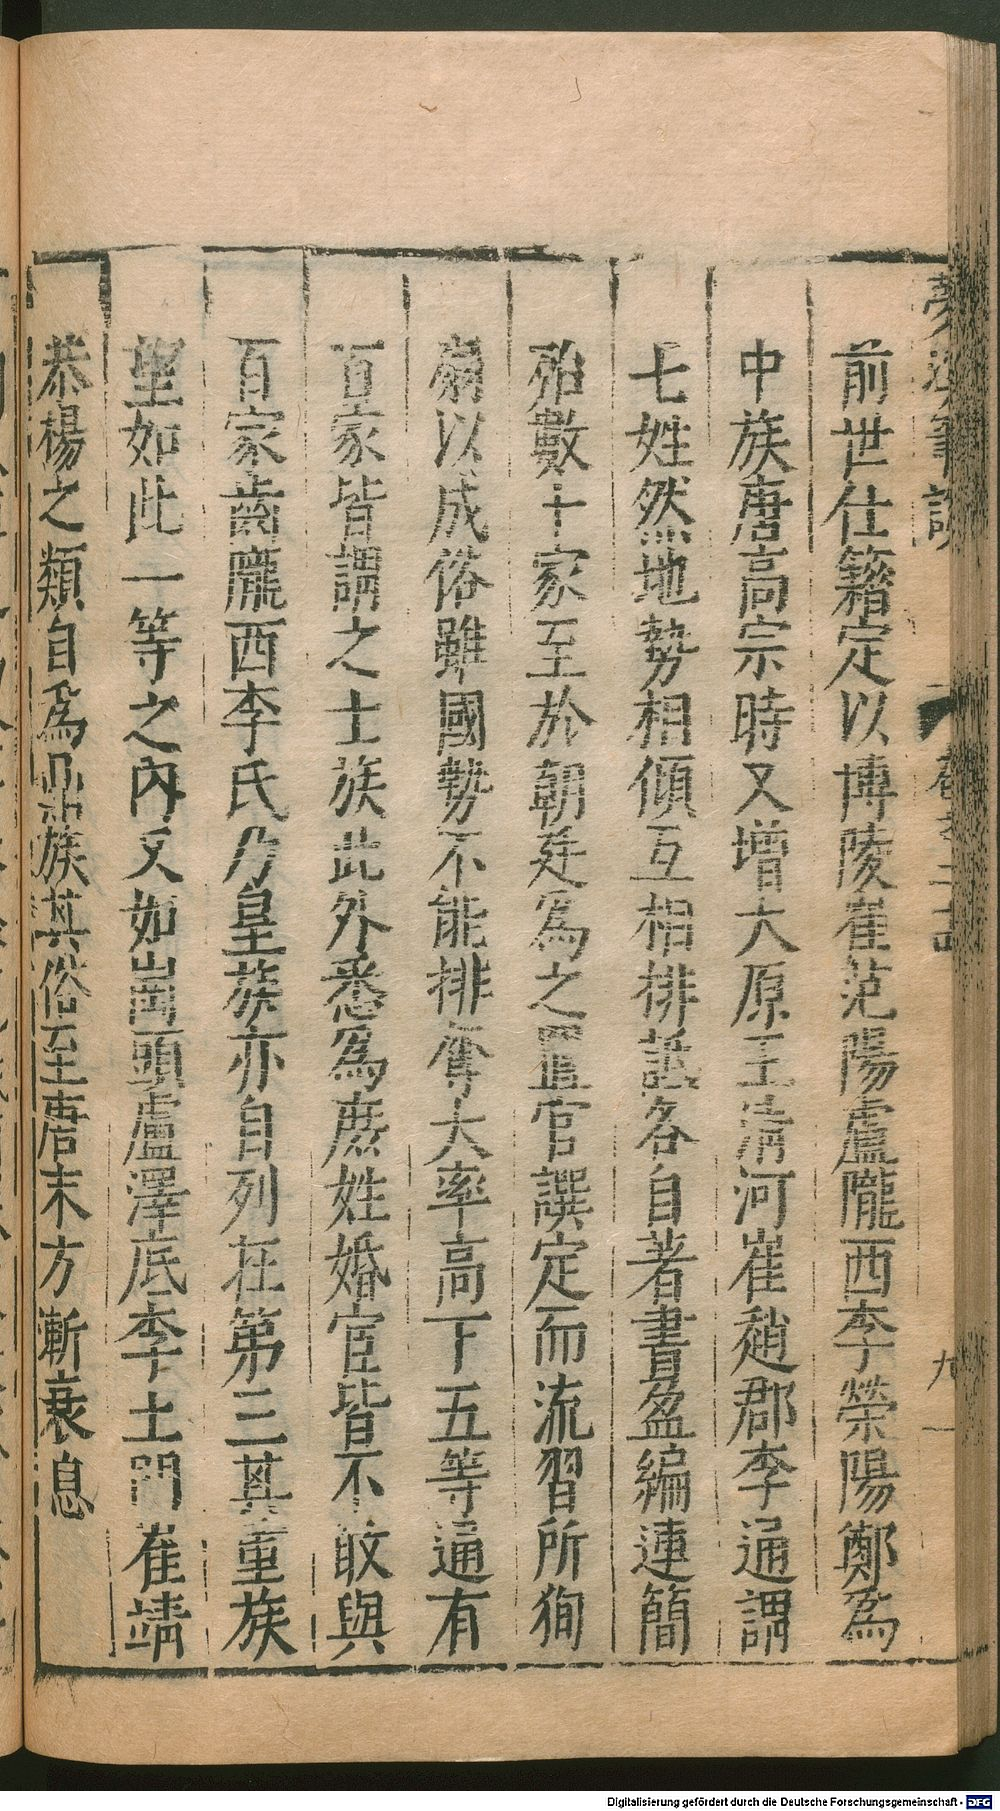 前世仕籍定以博陵崔范陽盧隴西李榮陽鄭爲
中族唐高宗時又增大原王清河崔趙郡李通謂
七姓然地勢相傾互相排詆各自著書盈編連簡
殆數十家至於朝廷爲之置官譔定而流習所狥
扇以成俗雖國勢不能排奪大率高下五等通有
百家皆謂之士族此外悉爲庶姓婚宦皆不敢與
百家齒隴西李氏乃皇族亦自列在第三其重族
望如此一等之內又如崗頭盧澤底李土門崔靖
恭楊之類自爲鼎族其俗至唐末方漸衰息
Digitalisierung gefördert durch die Deutsche Forschungsgemeinschaft - DFG